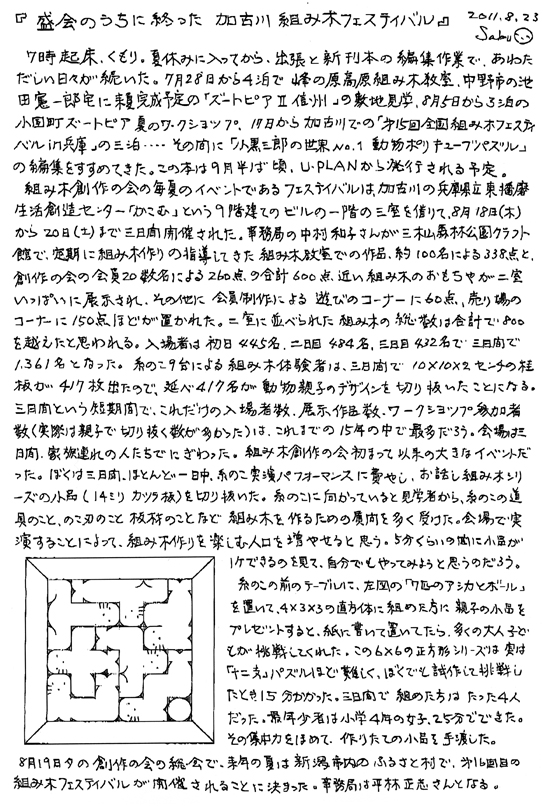 『盛会のうちに終った 加古川組み木フェスティバル』 2011.8.23
Sabu
7時起床、くもり。夏休みに入ってから、出張と新刊本の編集作業で、あわた
だしい日々が続いた。7月28日から4泊で 峰の原高原組み木教室、中野市の池
田憲一郎宅に来夏完成予定の「ズートピアⅡ信州」の敷地見学、8月5日から3泊の
小国町ズートピア夏のワークショップ、17日から加古川での「第15回全国組み木フェスティ
バル in 兵庫」の三泊‥‥その間に「小黒三郎の世界No.1 動物ポリチューブパズル」
の編集をすすめてきた。この本は9月半ば頃、U-PLANから発行される予定。
組み木創作の会の毎夏のイベントであるフェスティバルは加古川の兵庫県立東播磨
生活創造センター「かこむ」という9階建てのビルの一階の三室を借りて、8月18日(木)
から20日(土)まで三日間開催された。事務局の中村和子さんが三木山森林公園クラフト
館で、定期に組み木作りの指導してきた組み木教室での作品、約100名による338点と、
創作の会の会員20数名による260点の合計600点、近い組み木のおもちゃが二室
いっぱいに展示され、その他に会員制作による 遊びのコーナーに60点、売り場の
コーナーに150点ほどが置かれた。二室に並べられた組み木の総数は合計で800
を越えたと思われる。入場者は初日445名、二日目484名、三日目432名で三日間で
1.361名となった。糸のこ9台による組み木体験者は、三日間で 10×10×2センチの桂
板が417枚出たので、延べ417名が動物親子のデザインを切り抜いたことになる。
三日間という短期間で、これだけの入場者数、展示作品数、ワークショップ参加者
数(実際は親子で切り抜く数が多かった)は、これまでの15年の中で最多だろう。会場は三
日間、家族連れの人たちでにぎわった。組み木創作の会初まって以来の大きなイベントだ
った。ぼくは三日間、ほとんど一日中、糸のこ実演パフォーマンスに費やし、お話し組み木シリ
ーズの小品(14ミリカツラ板)を切り抜いた。糸のこに向かっていると見学者から、糸のこの道
具のこと、のこ刃のこと 板材のことなど 組み木を作るための質問を多く受けた。会場で実
演することによって、組み木作りを楽しむ人口を増やせると思う。5分くらいの間に小品が
1ケできるのを見て、自分でもやってみようと思うのだろう。
糸のこの前のテーブルに、左図の「7匹のアシカとボール」
を置いて、4×3×3の直方体に組めた方に 親子の小品を
プレゼントすると、紙に書いて置いてたら、多くの大人子ど
もが挑戦してくれた。この6×6の正方形シリーズは実は
「十二支」パズルほど難しく、ぼくでも試作して挑戦し
たとき15分かかった。三日間で 組めた方は たった4人
だった。最年少者は小学4年の女子、25分でできた。
その集中力をほめて、作りたての小品を手渡した。
8月19日夕の創作の会の総会で、来年の夏は新潟市内のふるさと村で、第16回目の
組み木フェスティバルが開催されることに決まった。事務局は平林正志さんとなる。